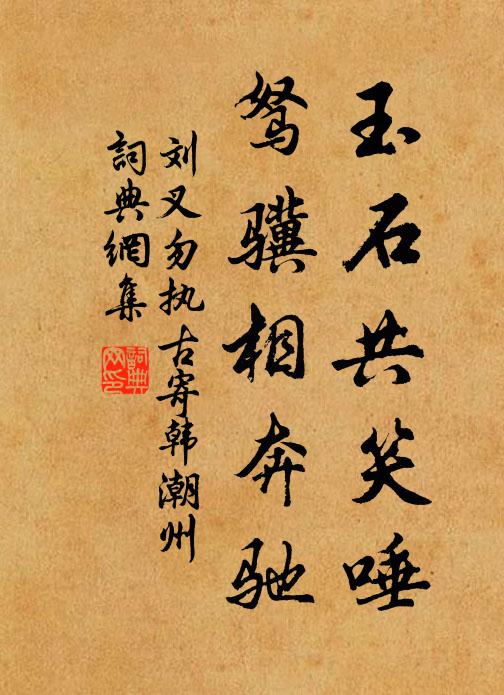 玉石共笑唾
驽骥相奔驰
刘叉勿执古寄韩潮州
詞典網集
詞典網印